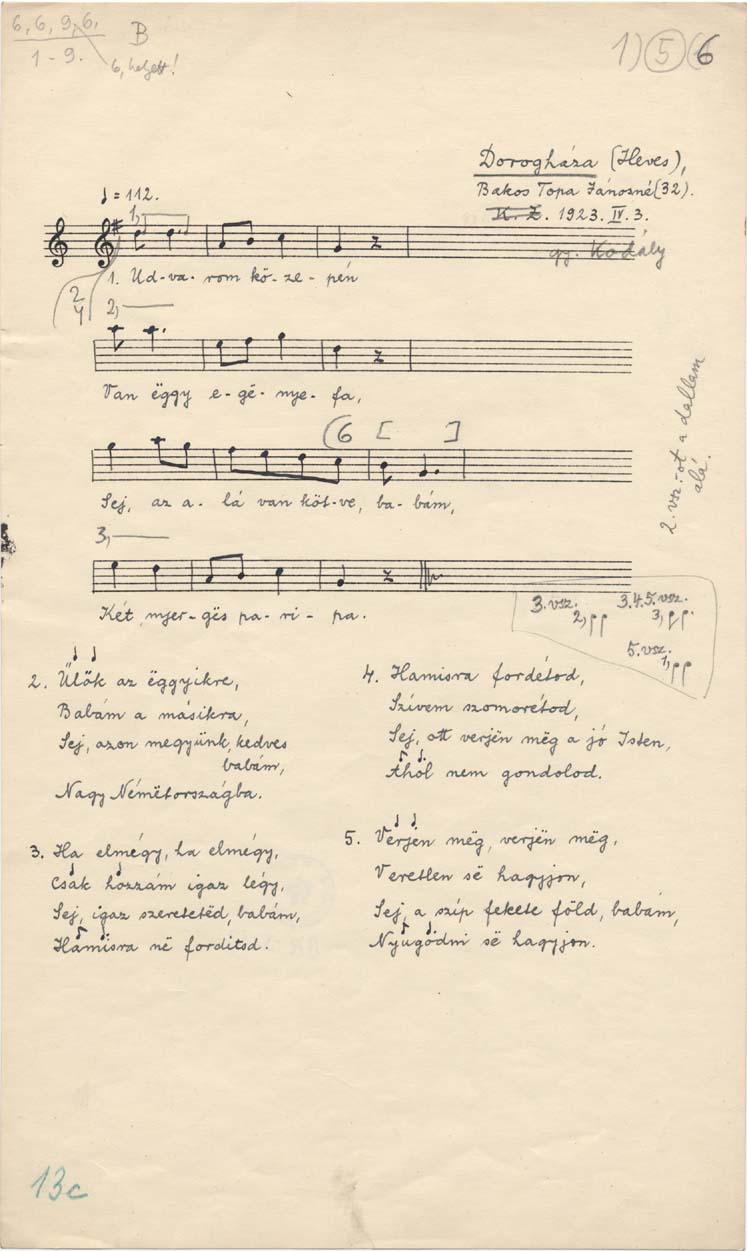 6, 6, 9, 6,
B
1 - 9.
6, helyett!
1) 5 6
Dorogháza (Heves),
Bakos Topa Jánosné (32).
♩ = 112.
K. Z. 1923. IV. 3.
gy. Kodály
1,
1. Ud-va-rom kö-ze-pén
2/4
2,
Van ëggy e-gë-nye-fa,
(6 [ ]
Sej, az a-lá van köt-ve, ba-bám,
2. vsz.-ot a dallam
alá.
3,
Két nyer-gës pa-ri-pa.
3. vsz. 3.4.5. vsz.
2, 3,
5. vsz.
1,
2. Ülök az ëggyikre,
Babám a másikra,
Sej, azon megyünk, kedves
babám,
Nagy Németországba.
3. Ha elmégy, ha elmégy,
Csak hozzám igaz légy,
Sej, igaz szeretetëd, babám,
Hamisra në forditsd.
4. Hamisra fordétod,
Szívem szomorétod,
Sej, ott verjën mëg a jó Isten,
Ahol nem gondolod.
5. Verjën mëg, verjën mëg,
Veretlen së hagyjon,
Sej, a szíp fekete föld, babám,
Nyugodni së hagyjon.
13c